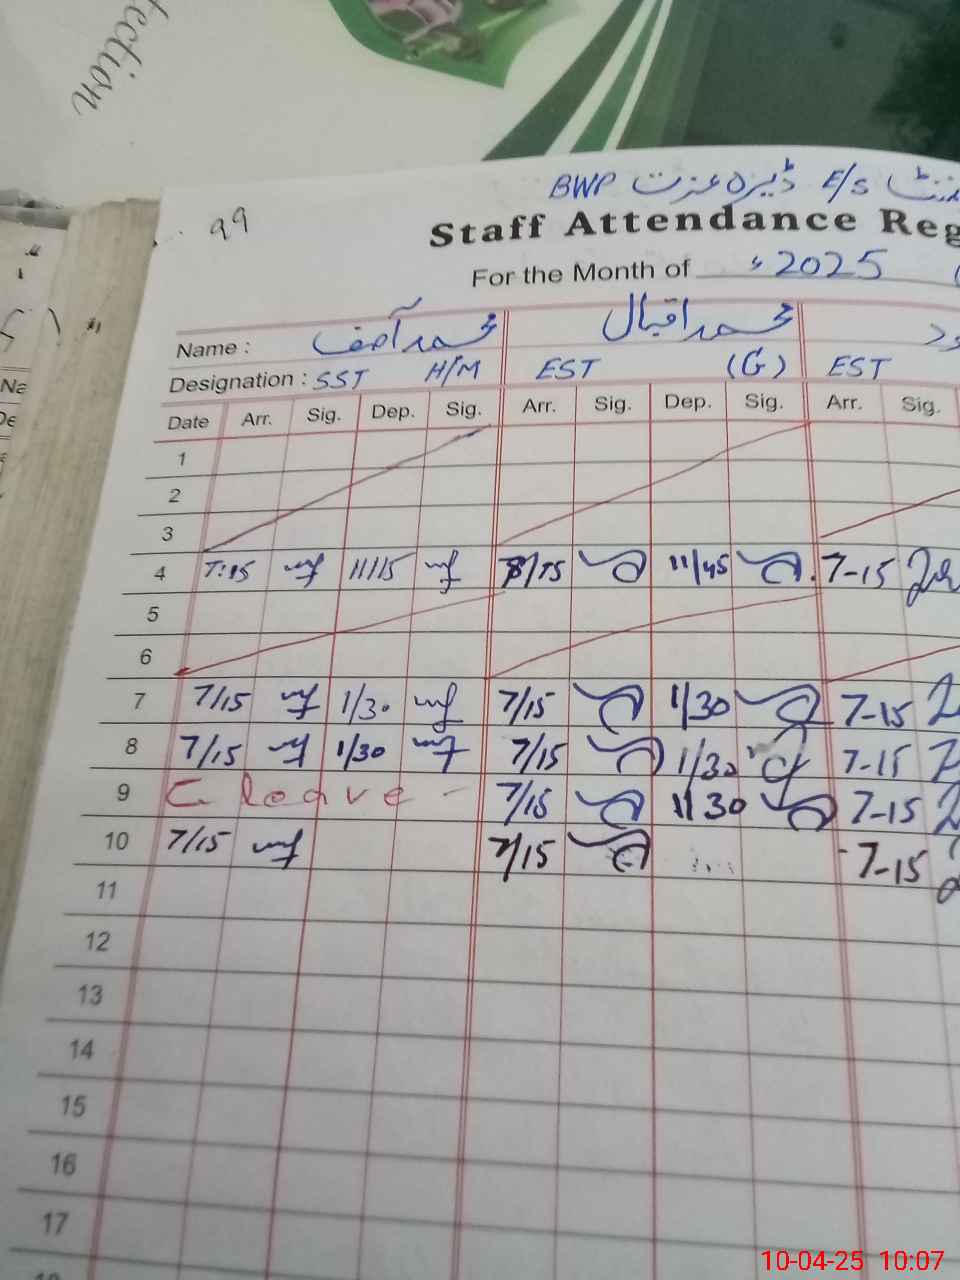 ection
99
BWP ڈیرہ عزت E/S
Staff Attendance Reg
For the Month of 2025
Name : محمد آصف محمد اقبال
Designation : SST H/M EST (G) EST
Date Arr. Sig. Dep. Sig. Arr. Sig. Dep. Sig. Arr. Sig.
1
2
3
4 7:15 11/15 8/15 11/45 7-15
5
6
7 7/15 1/30 7/15 1/30 7-15
8 7/15 1/30 7/15 1/30 7-15
9 C leave - 7/15 1/30 7-15
10 7/15 7/15 7-15
11
12
13
14
15
16
17
Na
De
10-04-25 10:07